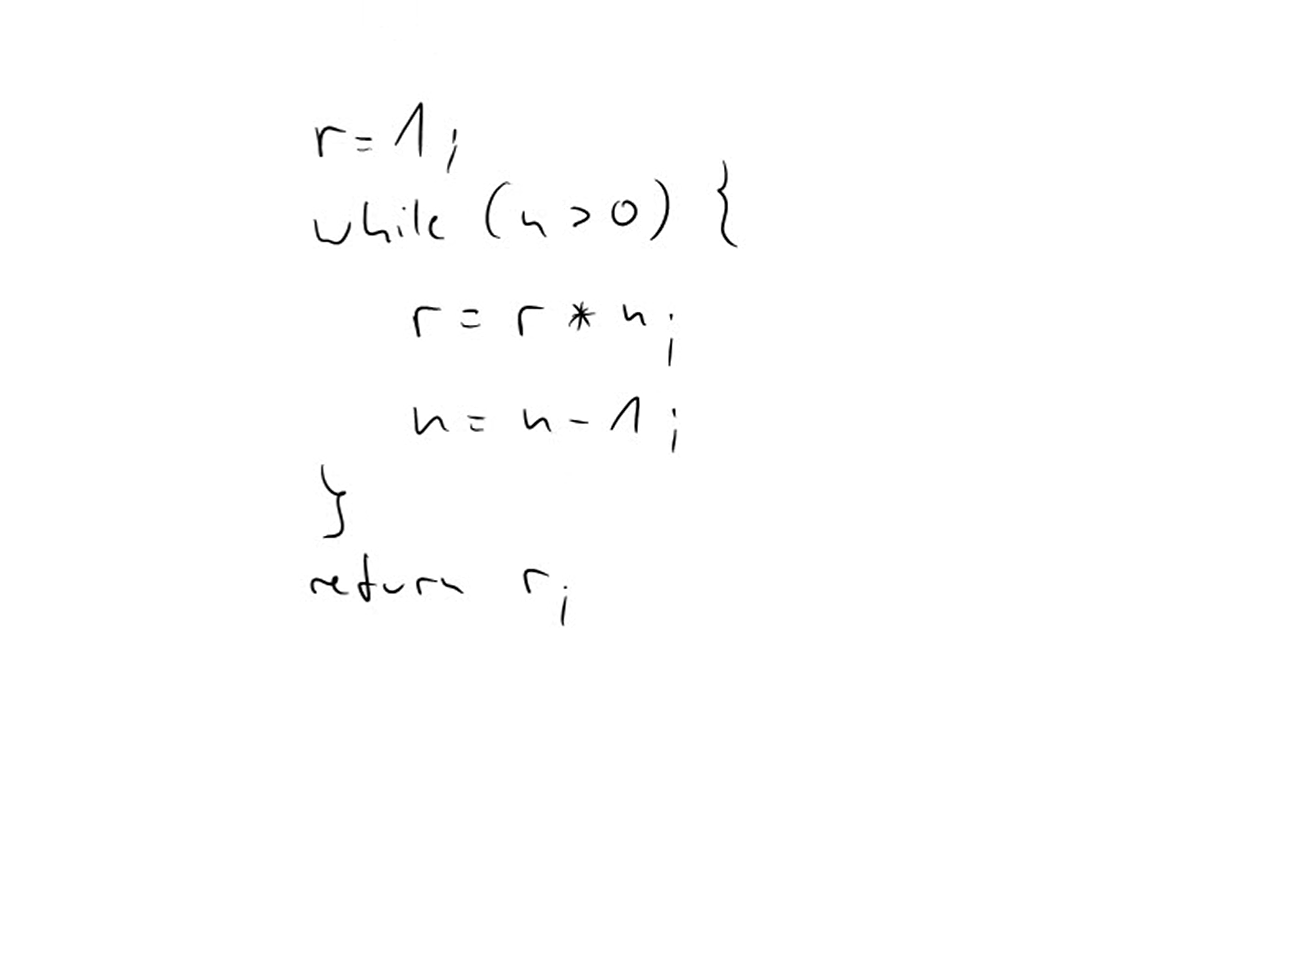 r = 1;
while (n > 0) {
r = r * n;
n = n - 1;
}
return r;